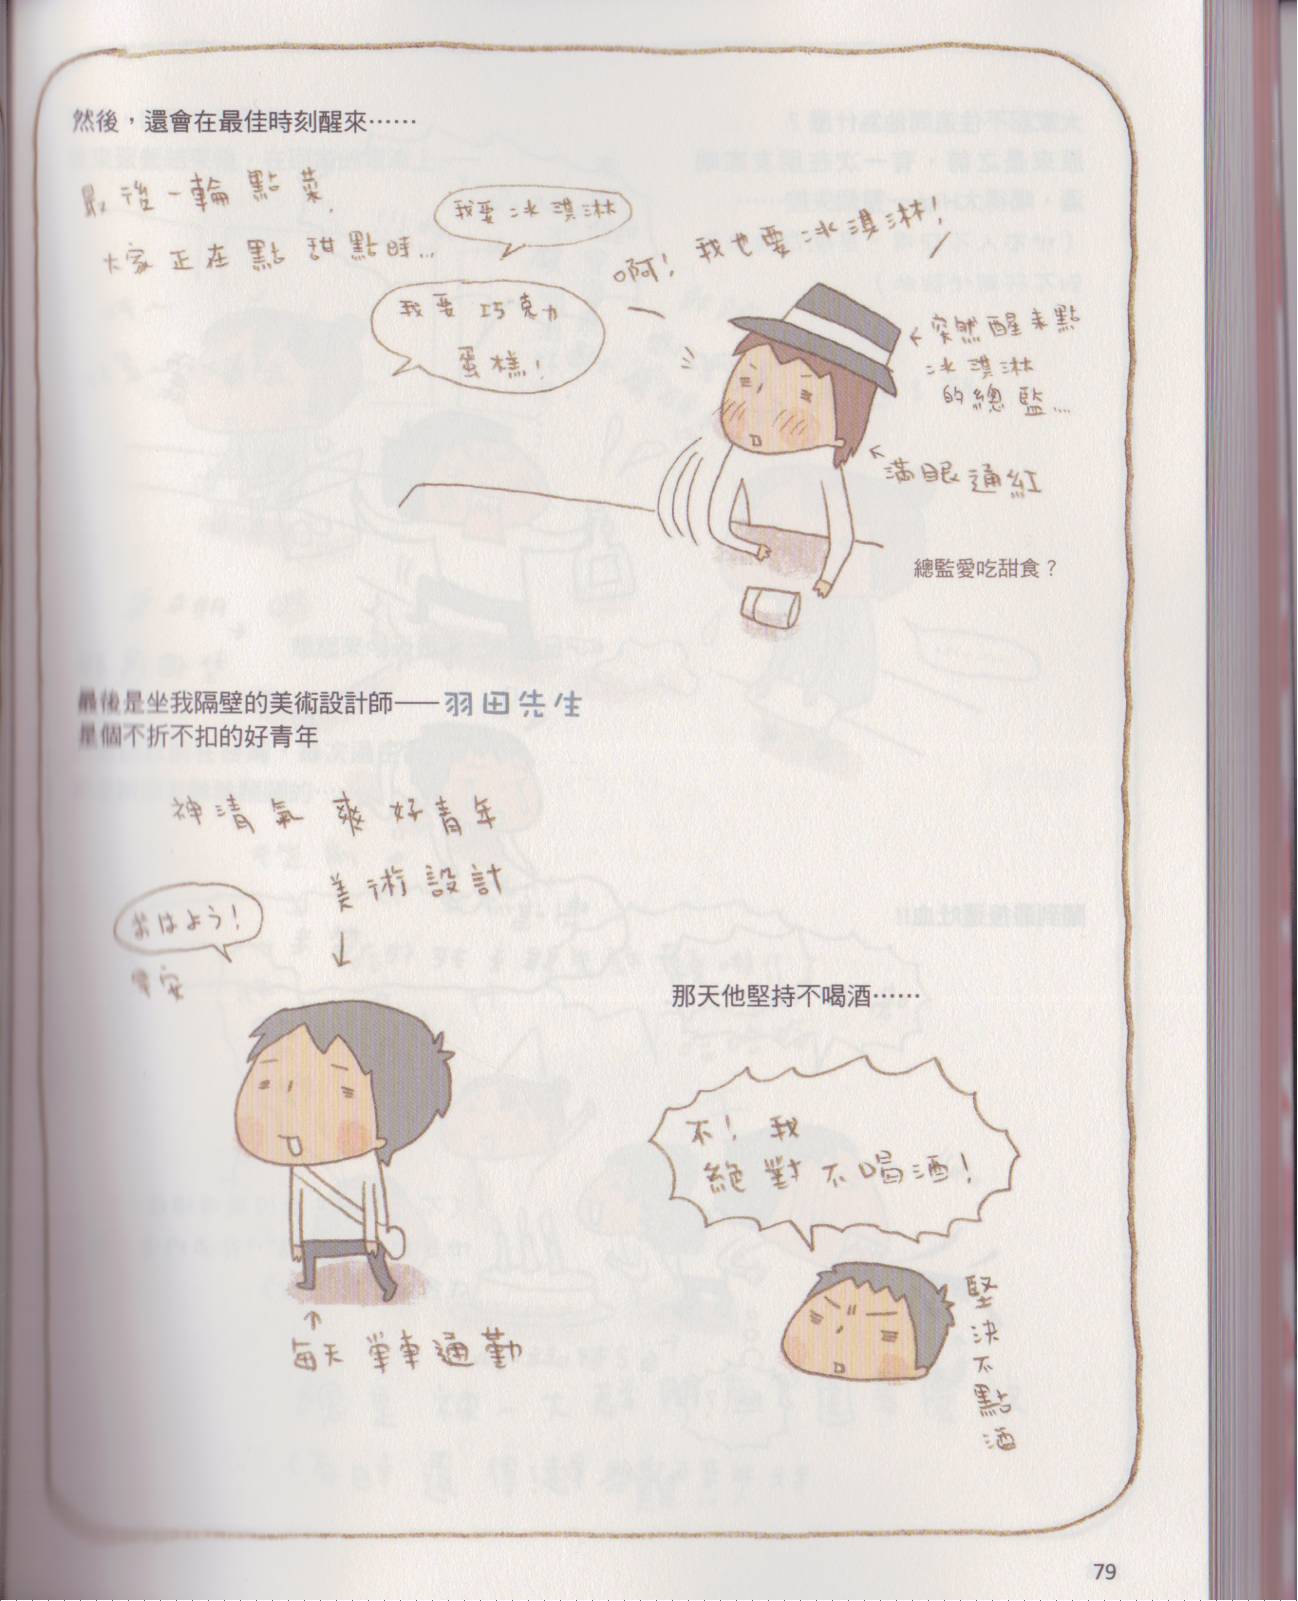 然後，還會在最佳時刻醒來⋯⋯
最後一輪點菜，
大家正在點甜點時…
我要冰淇淋
我要巧克力
蛋糕！
啊！我也要冰淇淋！
←突然醒來點
冰淇淋
的總監…
滿眼通紅
總監愛吃甜食？
最後是坐我隔壁的美術設計師——羽田先生
是個不折不扣的好青年
神清氣爽好青年
美術設計
おはよう！
早安
每天單車通勤
那天他堅持不喝酒⋯⋯
不！我
絕對不喝酒！
堅決不點酒
79